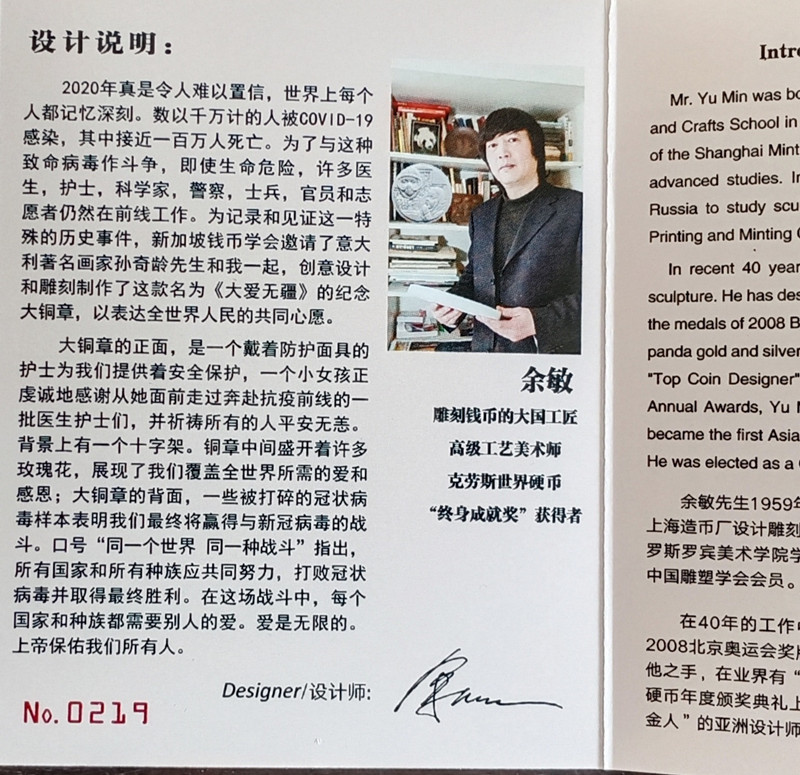 设计说明：
2020年真是令人难以置信，世界上每个
人都记忆深刻。数以千万计的人被COVID-19
感染，其中接近一百万人死亡。为了与这种
致命病毒作斗争，即使生命危险，许多医
生，护士，科学家，警察，士兵，官员和志
愿者仍然在前线工作。为记录和见证这一特
殊的历史事件，新加坡钱币学会邀请了意大
利著名画家孙奇龄先生和我一起，创意设计
和雕刻制作了这款名为《大爱无疆》的纪念
大铜章，以表达全世界人民的共同心愿。
大铜章的正面，是一个戴着防护面具的
护士为我们提供着安全保护，一个小女孩正
虔诚地感谢从她面前走过奔赴抗疫前线的一
批医生护士们，并祈祷所有的人平安无恙。
背景上有一个十字架。铜章中间盛开着许多
玫瑰花，展现了我们覆盖全世界所需的爱和
感恩；大铜章的背面，一些被打碎的冠状病
毒样本表明我们最终将赢得与新冠病毒的战
斗。口号“同一个世界 同一种战斗”指出，
所有国家和所有种族应共同努力，打败冠状
病毒并取得最终胜利。在这场战斗中，每个
国家和种族都需要别人的爱。爱是无限的。
上帝保佑我们所有人。
Designer/设计师:
No.0219
余敏
雕刻钱币的大国工匠
高级工艺美术师
克劳斯世界硬币
“终身成就奖”获得者
Intro
Mr. Yu Min was bo
and Crafts School in
of the Shanghai Mint
advanced studies. In
Russia to study scu
Printing and Minting C
In recent 40 year
sculpture. He has des
the medals of 2008 B
panda gold and silver
"Top Coin Designer"
Annual Awards, Yu M
became the first Asia
He was elected as a
余敏先生1959年
上海造币厂设计雕刻
罗斯罗宾美术学院学
中国雕塑学会会员。
在40年的工作中
2008北京奥运会奖牌
他之手，在业界有“
硬币年度颁奖典礼上
金人”的亚洲设计师